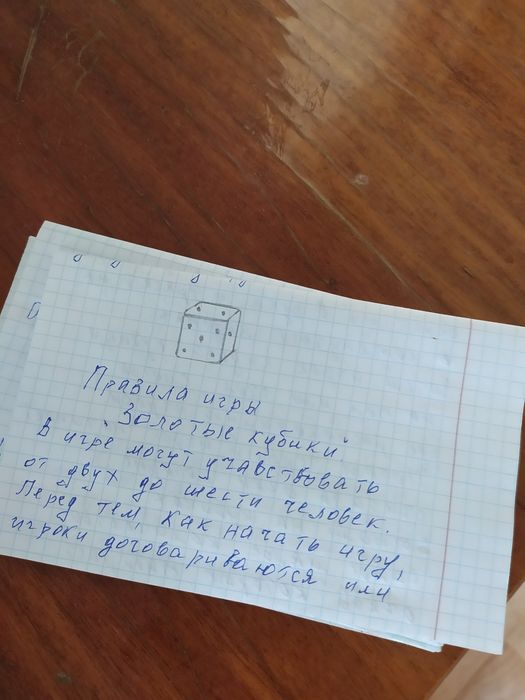 Правила игры
"Золотые кубики"
В игре могут учавствовать
от двух до шести человек.
Перед тем, как начать игру,
игроки договариваются или